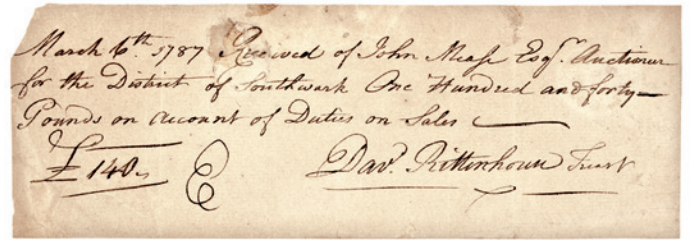 March 6th. 1787 Received of John Mease Esqr. Auctioneer
for the District of Southwark One Hundred and forty—
Pounds on account of Duties on Sales —
£140,, 
Davd. Rittenhouse Treasr